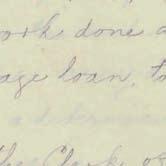 work done a
age loan, to
the Clerk o